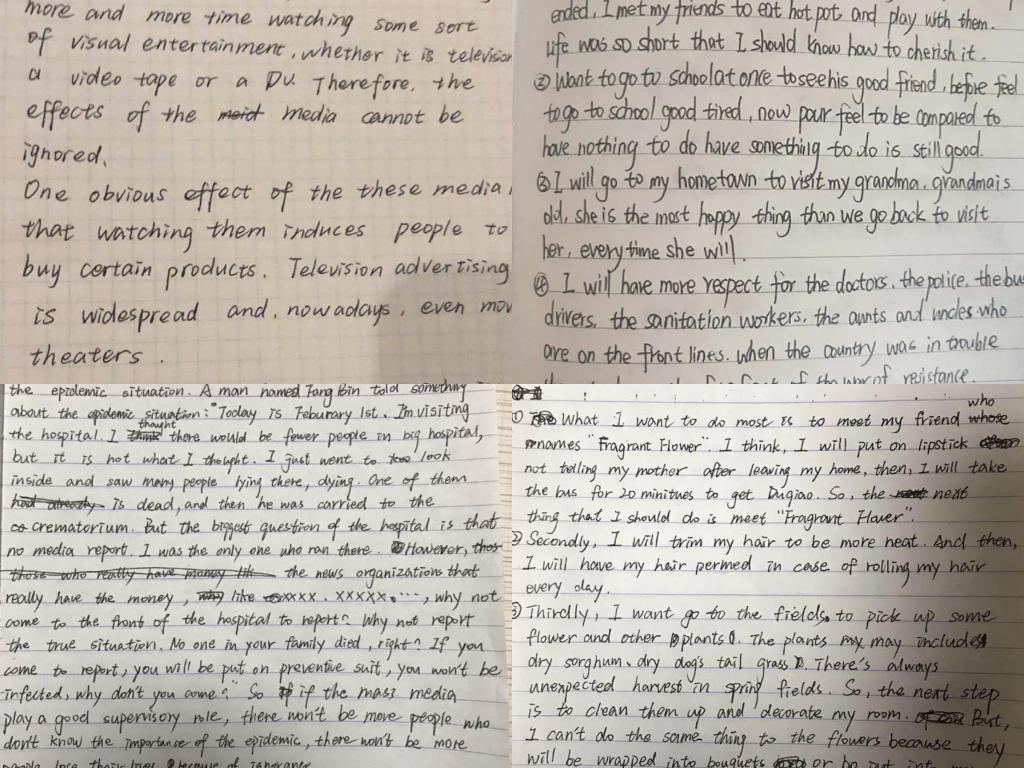 more and more time watching some sort
of visual entertainment, whether it is television
a video tape or a DV. Therefore, the
effects of the media cannot be
ignored.
One obvious effect of the these media,
that watching them induces people to
buy certain products. Television advertising
is widespread and, nowadays, even mov
theaters.
ended, I met my friends to eat hot pot and play with them.
life was so short that I should know how to cherish it.
② Want to go to school at once to see his good friend, before feel
to go to school good tired, now pour feel to be compared to
have nothing to do have something to do is still good.
③ I will go to my hometown to visit my grandma, grandma is
old, she is the most happy thing than we go back to visit
her, every time she will.
④ I will have more respect for the doctors, the police, the bus
drivers, the sanitation workers, the aunts and uncles who
are on the front lines. when the country was in trouble
of the war of resistance.
the epidemic situation. A man named Fang Bin told something
about the epidemic situation: "Today is Feburary 1st. I'm visiting
the hospital. I thought there would be fewer people in big hospital,
but it is not what I thought. I just went to look
inside and saw many people lying there, dying. One of them
is dead, and then he was carried to the
crematorium. But the biggest question of the hospital is that
no media report. I was the only one who ran there. However,
the news organizations that
really have the money, like xxxx, xxxxx...., why not
come to the front of the hospital to report? Why not report
the true situation. No one in your family died, right? If you
come to report, you will be put on preventive suit, you won't be
infected, why don't you come?" So if the mass media
play a good supervisory role, there won't be more people who
don't know the importance of the epidemic, there won't be more
people lose their lives because of ignorance.
① What I want to do most is to meet my friend who
names "Fragrant Flower". I think, I will put on lipstick
not telling my mother after leaving my home, then, I will take
the bus for 20 minitues to get Duqiao. So, the next
thing that I should do is meet "Fragrant Flower".
② Secondly, I will trim my hair to be more neat. And then,
I will have my hair permed in case of rolling my hair
every day.
③ Thirdly, I want go to the fields. to pick up some
flower and other plants. The plants may include
dry sorghum, dry dog's tail grass. There's always
unexpected harvest in spring fields. So, the next step
is to clean them up and decorate my room. But,
I can't do the same thing to the flowers because they
will be wrapped into bouquets or be put into my